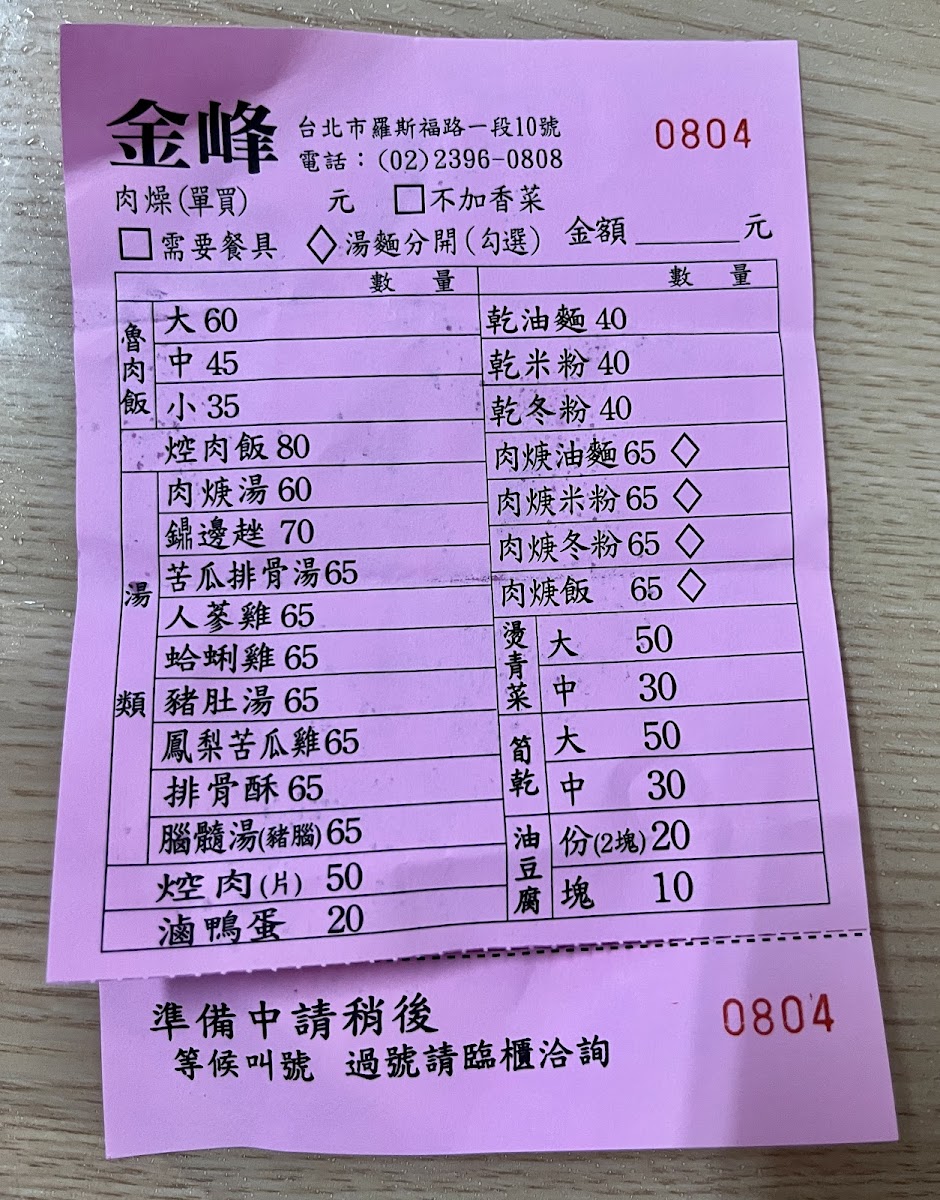 金峰
台北市羅斯福路一段10號
電話：(02)2396-0808
0804
肉燥(單買) 元 □不加香菜
□需要餐具 ◇湯麵分開(勾選) 金額______元
數 量
數 量
魯肉飯
大 60
中 45
小 35
焢肉飯 80
湯類
肉焿湯 60
鼎邊趖 70
苦瓜排骨湯65
人蔘雞 65
蛤蜊雞 65
豬肚湯 65
鳳梨苦瓜雞65
排骨酥 65
腦髓湯(豬腦)65
焢肉(片) 50
滷鴨蛋 20
乾油麵 40
乾米粉 40
乾冬粉 40
肉焿油麵 65 ◇
肉焿米粉 65 ◇
肉焿冬粉 65 ◇
肉焿飯 65 ◇
燙青菜
大 50
中 30
筍乾
大 50
中 30
油豆腐
份(2塊) 20
塊 10
準備中請稍後
0804
等候叫號 過號請臨櫃洽詢